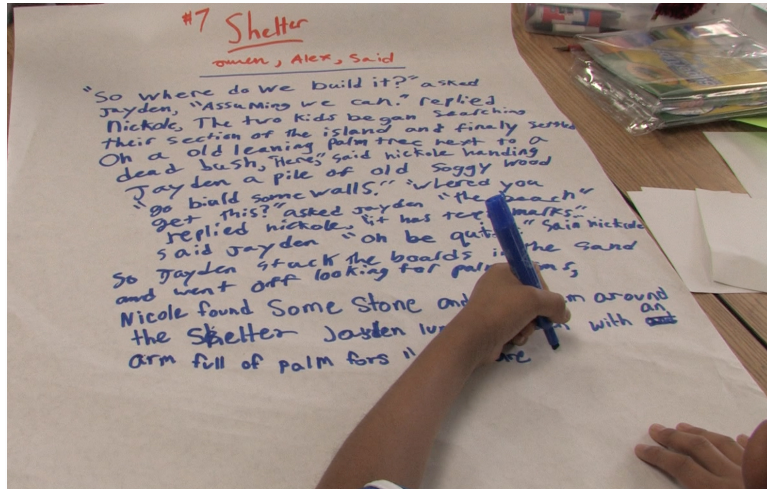 #7 Shelter
owen, Alex, Said
"So where do we build it?" asked
Jayden, "Assuming we can." replied
Nickole, The two kids began searching
their section of the island and finaly settled
On a old leaning palm tree next to a
dead bush, "Here," said nickole handing
Jayden a pile of old soggy wood
"go biuld some walls." "whered you
get this?" asked Jayden "the beach"
replied nickole, "it has marks"
said Jayden "oh be said nickole
So Jayden stuck the boards in the sand
and went off looking for
Nicole found some stone and around
the Shelter Jayden with an
arm full of palm fors "